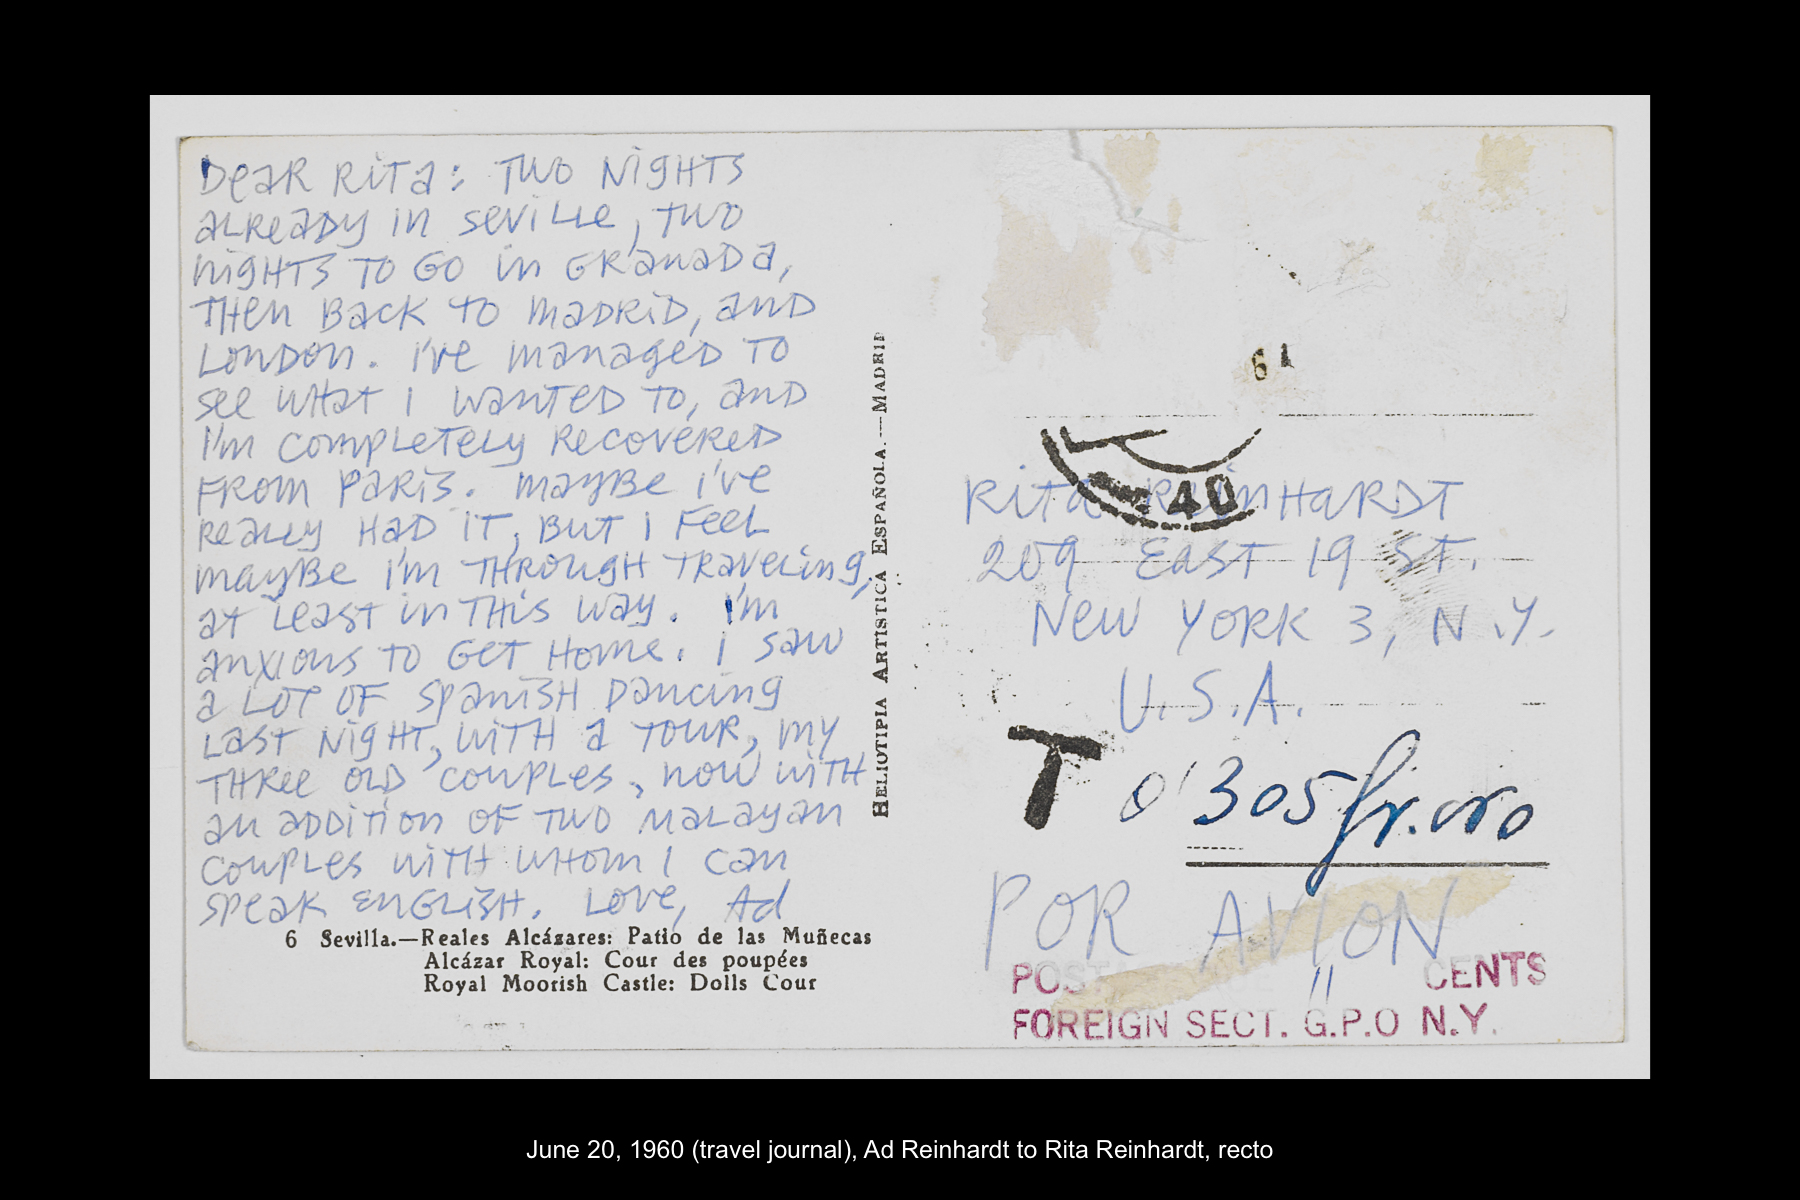 Dear Rita: Two nights
already in Seville, two
nights to go in Granada,
then back to Madrid, and
London. I've managed to
see what I wanted to, and
I'm completely recovered
from Paris. Maybe I've
really had it, but I feel
maybe I'm through traveling,
at least in this way. I'm
anxious to get home. I saw
a lot of Spanish dancing
last night, with a tour, my
three old couples, now with
an addition of two Malayan
couples with whom I can
speak English. Love, Ad
6 Sevilla.—Reales Alcázares: Patio de las Muñecas
Alcázar Royal: Cour des poupées
Royal Moorish Castle: Dolls Cour
Heliotipia Artistica Española.—Madrid
61
40
Rita Reinhardt
209 East 19 St.
New York 3, N.Y.
U.S.A.
T 0'305 fr. oro
POR AVION
CENTS
FOREIGN SECT. G.P.O N.Y.
June 20, 1960 (travel journal), Ad Reinhardt to Rita Reinhardt, recto